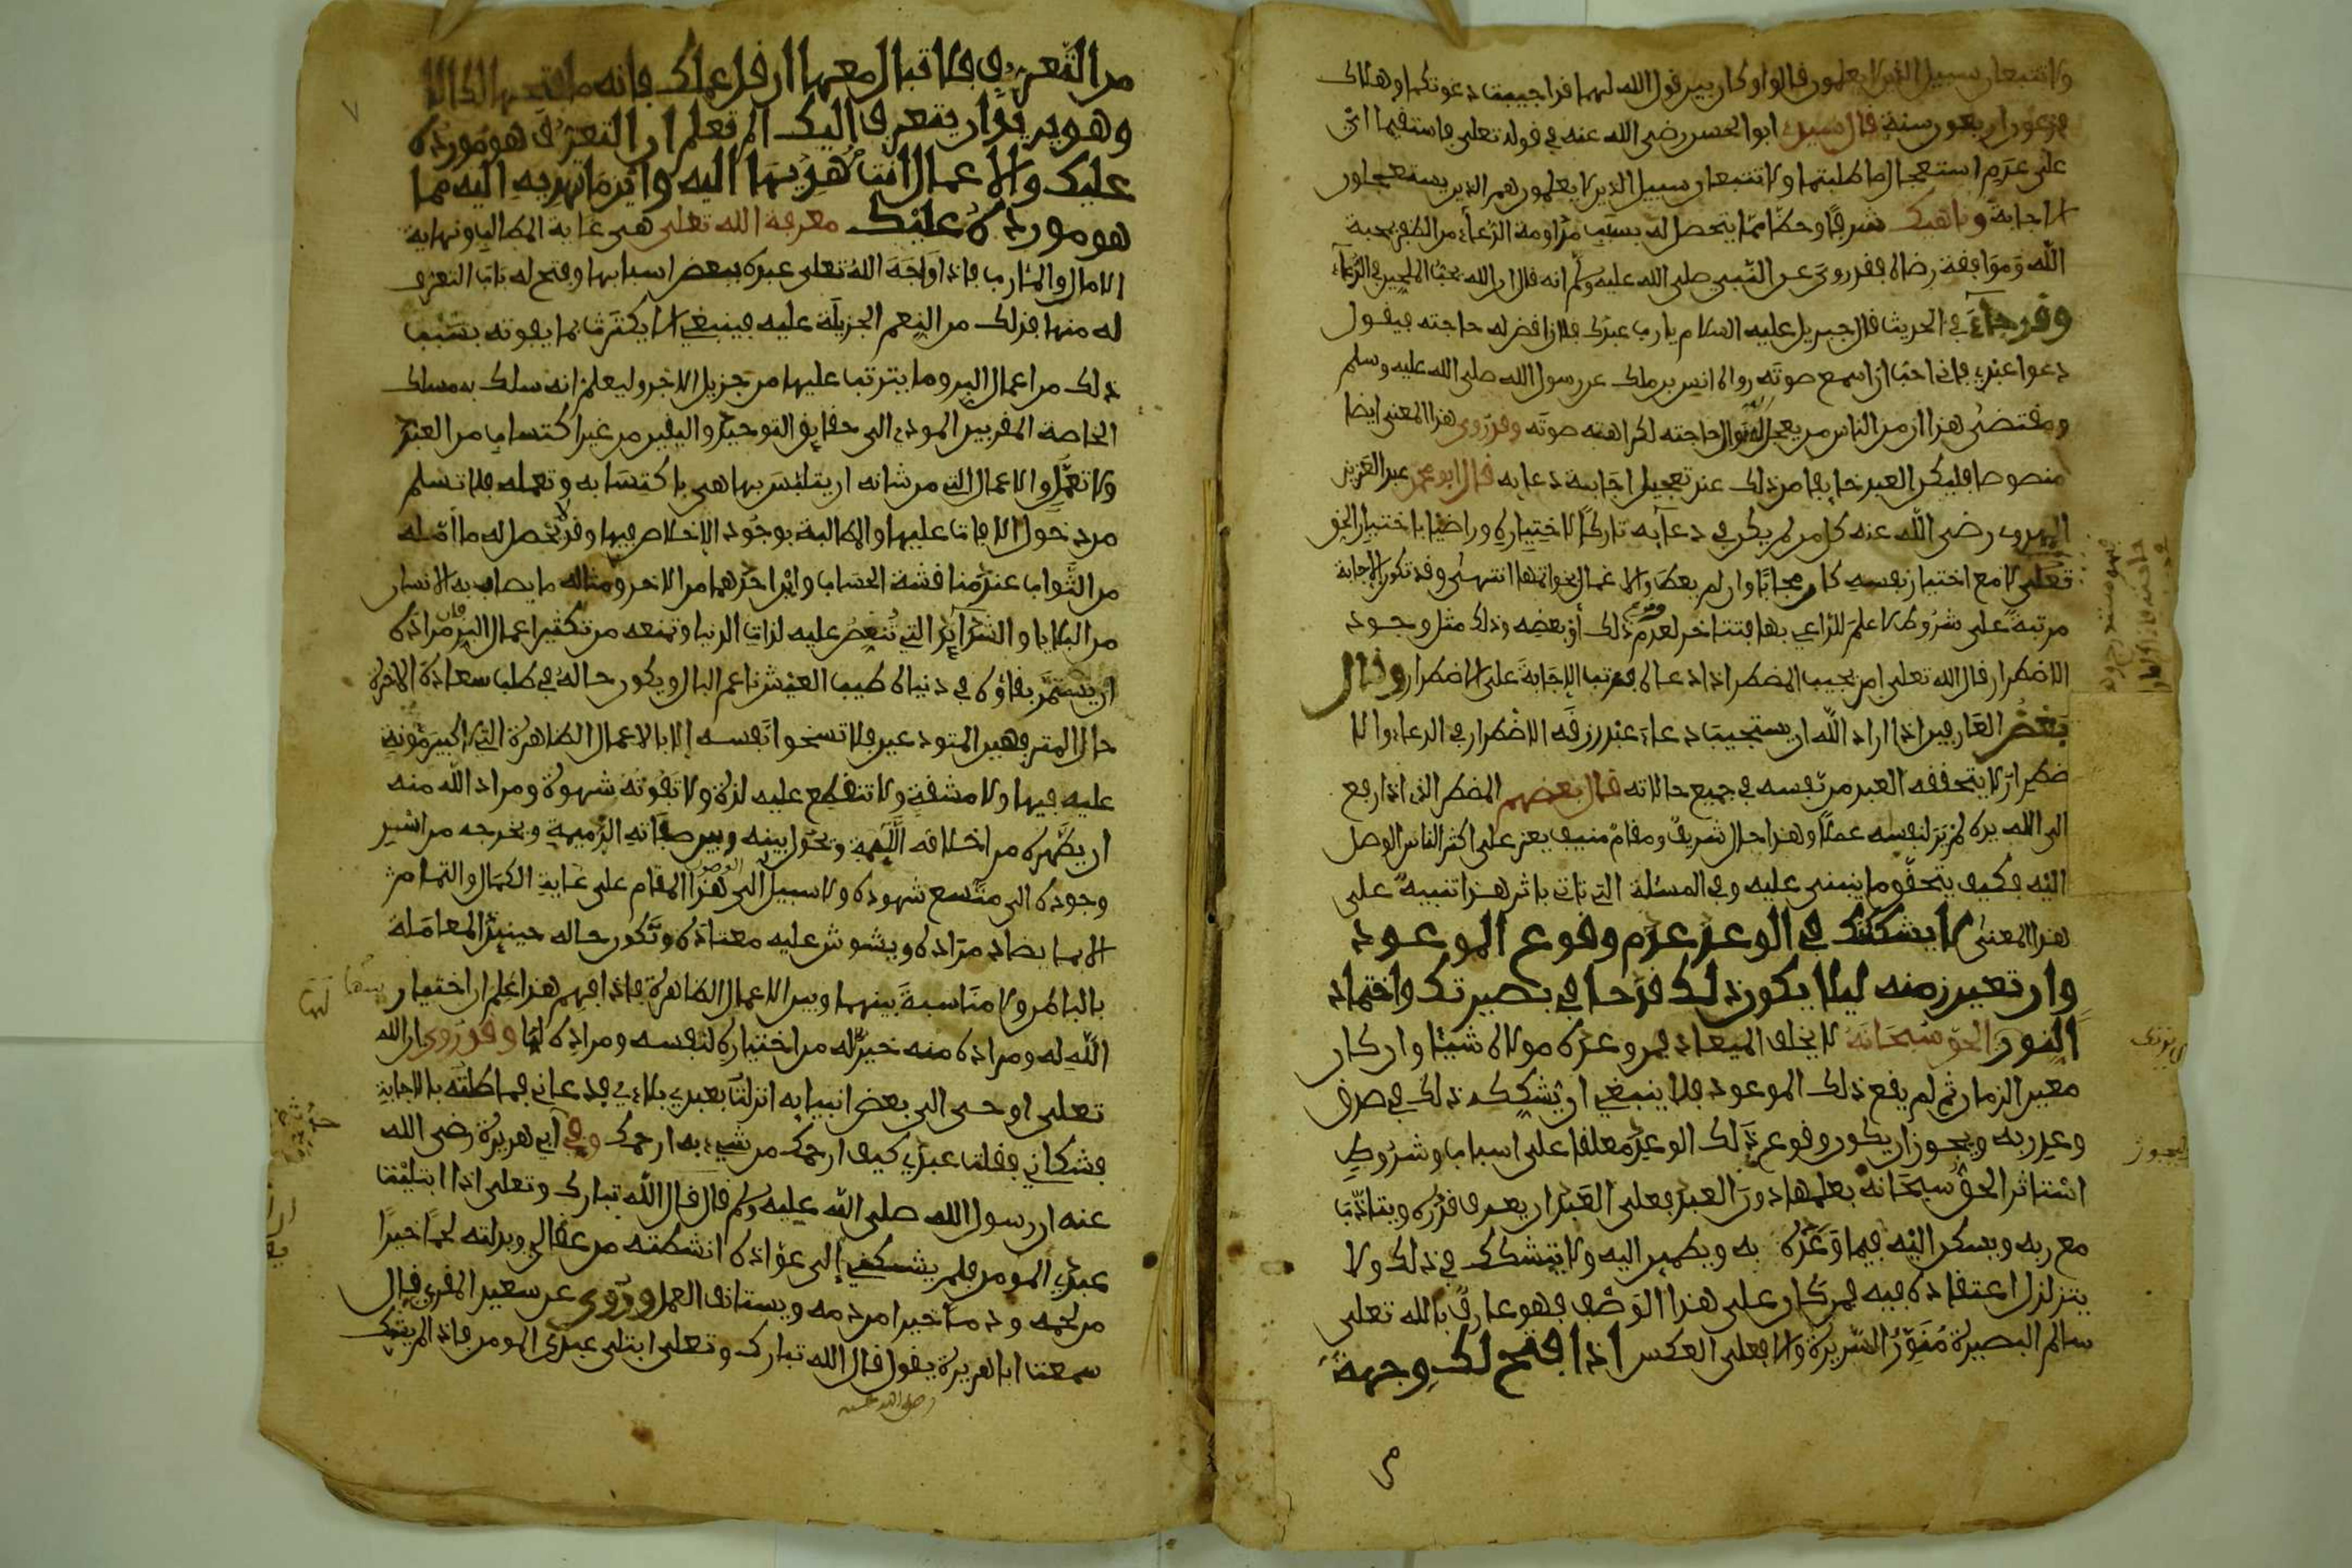 ولا تتبعان سبيل الذين لا يعلمون قالوا وكان بين قول الله لهما قد اجيبت دعوتكما وهلاك
فرعون اربعون سنة قال سيدي ابو الحسن رضي الله عنه في قوله تعلى فاستقيما اي
على عدم استعجال ما طلبتما ولا تتبعان سبيل الذين لا يعلمون هم الذين يستعجلون
الاجابة وناهيك شرفا وحظا مما يتحصل له بسبب مداومة الدعاء من الظفر بمحبة
الله وموافقة رضاه فقد روي عن النبي صلى الله عليه وسلم انه قال ان الله يحب الملحين في الدعاء
وقد جاء في الحديث قال جبريل عليه السلام يا رب عبدك فلان اقض له حاجته فيقول
دعوا عبدي فاني احب ان اسمع صوته رواه انس بن ملك عن رسول الله صلى الله عليه وسلم
ومقتضى هذا ان من الناس من يعجل له نوال حاجته لكراهته صوته وقد روي هذا المعنى ايضا
منصوصا فليكن العبد خايفا من ذلك عند تعجيل اجابة دعايه قال ابو محمد عبد العزيز
المهدوي رضي الله عنه كل من لم يكن في دعايه تاركا لاختياره وراضيا باختيار الحق
تعلى لا مع اختيار نفسه كان مجابا وان لم يعط والاعمال بخواتمها انتهى وقد تكون الاجابة
مرتبة على شروط لا علم للداعي بها فتتاخر لعدم وقوع ذلك أو بعضه وذلك مثل وجود
الاضطرار قال الله تعلى امن يجيب المضطر اذا دعاه فرتب الاجابة على الاضطرار وقال
بعض العارفين اذا اراد الله ان يستجيب دعاء عبد رزقه الاضطرار في الدعاء والا
ضطرار لا يتحققه العبد من نفسه في جميع حالاته قال بعضهم المضطر الذي اذا رفع
الى الله يده لم ير لنفسه عملا وهذا حال شريف ومقام منيف يعز على اكثر الناس الوصل
اليه فكيف يتحقق ما ينبني عليه وفي المسئلة التي تاتي باثر هذا تنبيه على
هذا المعنى لا يشككنك في الوعد عدم وقوع الموعود
وان تعين زمنه ليلا يكون ذلك قدحا في بصيرتك واخمادا
لنور الحق سبحانه لا يخلف الميعاد فمن وعده مولاه شيئا وان كان
معين الزمان ثم لم يقع ذلك الموعود فلا ينبغي ان يشككه ذلك في صدق
وعد ربه ويجوز ان يكون وقوع ذلك الوعد معلقا على اسباب وشروط
استاثر الحق سبحانه بعلمها دون العبد فعلى العبد ان يعرف قدره ويتادب
مع ربه ويسكن اليه فيما وعده به ويطمين اليه ولا يتشكك في ذلك ولا
يتزلزل اعتقاده فيه فمن كان على هذا الوصف فهو عارف بالله تعلى
سالم البصيرة منور السريرة والا فعلى العكس اذا فتح لك وجهة
من التعرف فلا تبال معها ان قل عملك فانه ما فتحها لك الا
وهو يريد ان يتعرف اليك الم تعلم ان التعرف هو مورده
عليك والاعمال انت مهديها اليه واين ما تهديه اليه مما
هو مورده عليك معرفة الله تعلى هي غاية المطالب ونهاية
الامال والمئارب فاذا واجه الله تعلى عبده ببعض اسبابها وفتح له باب التعرف
له منها فذلك من النعم الجزيلة عليه فينبغي الا يكترث بما يفوته بسبب
ذلك من اعمال البر وما يترتب عليها من جزيل الاجر وليعلم انه سلك به مسلك
الخاصة المقربين المودي الى حقايق التوحيد واليقين من غير اكتساب من العبد
ولا تعمل والاعمال التي من شانه ان يتلبس بها هي باكتسابه وتعمله فلا تسلم
من دخول الافات عليها والمطالبة بوجود الاخلاص فيها وقد لا يحصل له ما امله
من الثواب عند مناقشة الحساب واين احدهما من الاخر ومثاله ما يصاب به الانسان
من البلايا والشدايد التي تنغص عليه لذات الدنيا وتمنعه من تكثير اعمال البر فان مراده
ان يستمر بقاؤه في دنياه طيب العيش ناعم البال ويكون حاله في طلب سعادة الاخرة
حال المترفهين المتودعين فلا تسخوا نفسه الا بالاعمال الظاهرة التي لا كبير مؤنة
عليه فيها ولا مشقة ولا تنقطع عليه لذة ولا تفوته شهوة ومراد الله منه
ان يطهره من اخلاقه اللئيمة ويحول بينه وبين صفاته الذميمة ويخرجه من اسر
وجوده الى متسع شهوده ولا سبيل الى الوصول هذا المقام على غاية الكمال والتمام
الا بما يضاد مراده ويشوش عليه معتاده وتكون حاله حينئذ المعاملة
بالباطن ولا مناسبة بينهما وبين الاعمال الظاهرة فاذا فهم هذا علم ان اختيار
الله له ومراده منه خير له من اختياره لنفسه ومراده لها وقد روي ان الله
تعلى اوحى الى بعض انبيايه انزلت بعبدي بلاءي فدعاني فماطلته بالاجابة
فشكاني فقلت عبدي كيف ارحمك من شيء به ارحمك وفي ابي هريرة رضي الله
عنه ان رسول الله صلى الله عليه وسلم قال قال الله تبارك وتعلى اذا ابتليت
عبدي المومن فلم يشكني إلى عواده انشطته من عقالي وبدلته لحما خيرا
من لحمه ودما خيرا من دمه ويستانف العمل وروي عن سعيد المقبري قال
سمعت ابا هريرة يقول قال الله تبارك وتعلى ابتلي عبدي المومن فاذا لم يشك